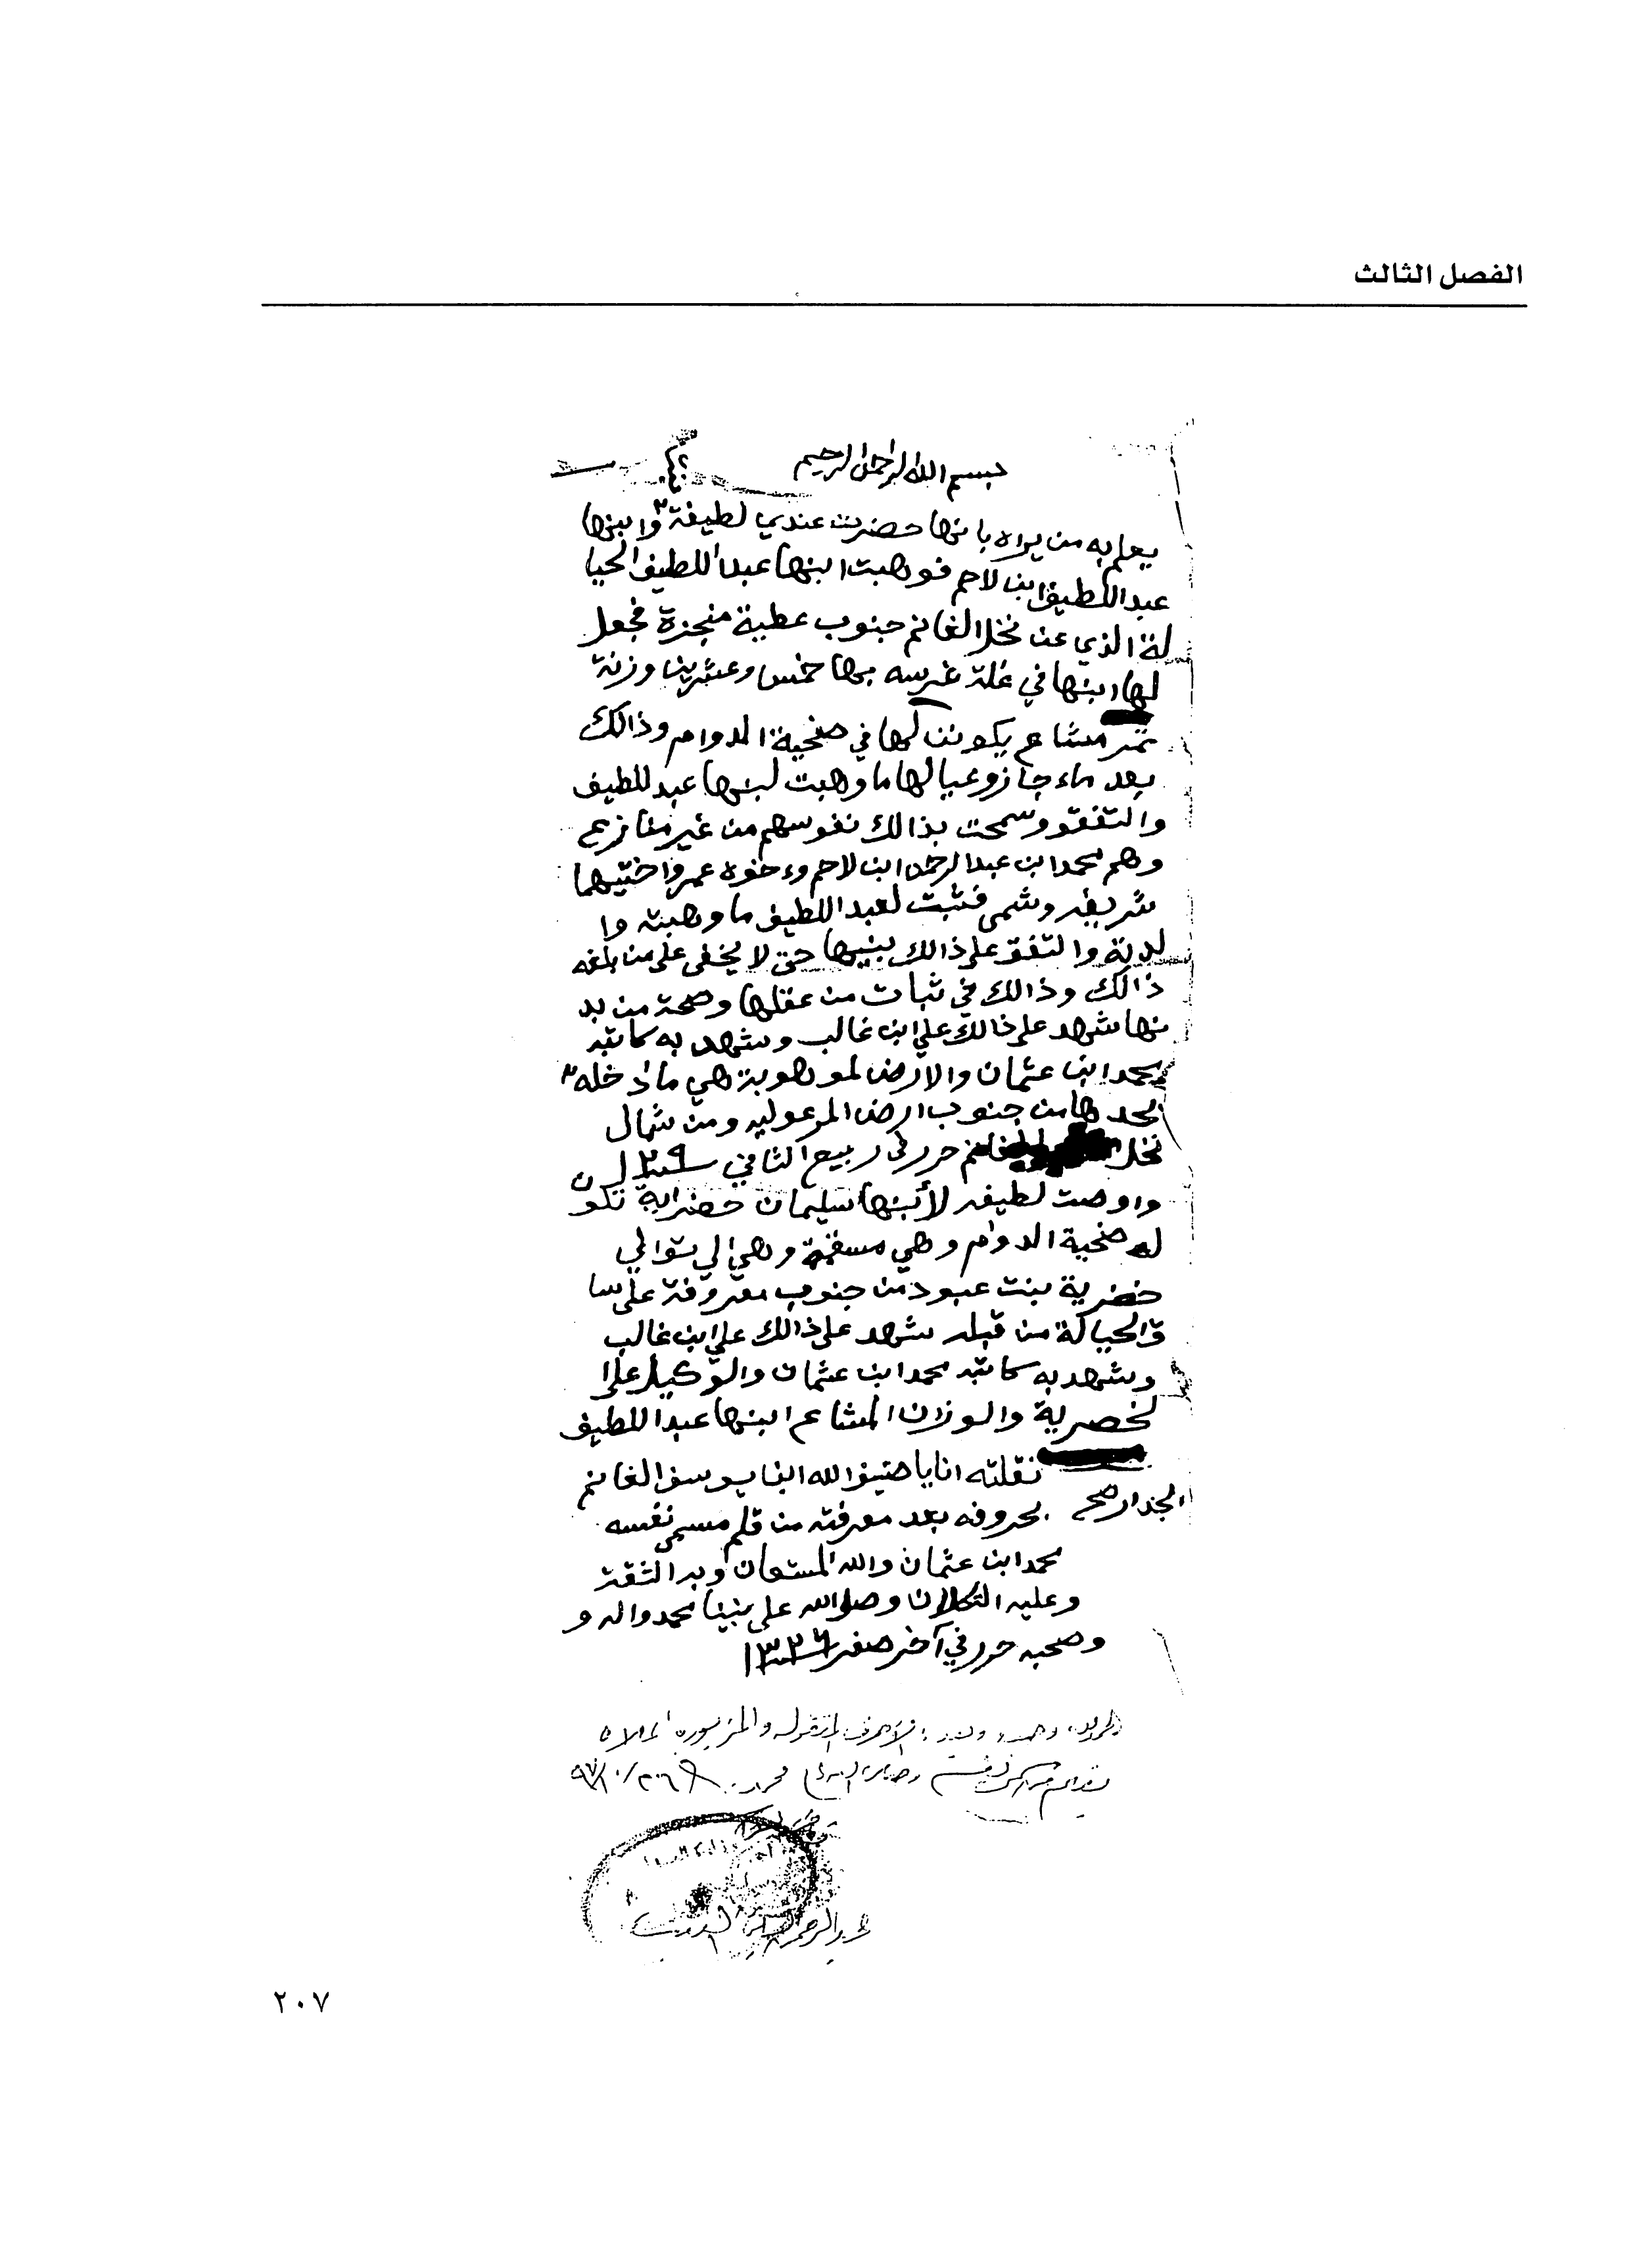 الفصل الثالث
بسم الله الرحمن الرحيم
يعلم به من يراه بانها حضرت عندي لطيفة وابنها
عبد اللطيف ابن لاحم فوهبت ابنها عبد اللطيف الحيا
لة الذي عن نخل الغانم جنوب عطية منجزة فجعل
لها ابنها في غلة غرسه بها خمس وعشرين وزنة
تمر مشاع يكونن لها في ضحية الدوام وذالك
بعد ماء جازو عيالها ما وهبت لبنها عبد للطيف
والتفقو وسمحت بذالك نفوسهم من غير منازع
وهم محمد ابن عبد الرحمن ابن لاحم وءخوه عمر واختيهما
شريفه وشمى فثبت لعبد اللطيف ما وهبته وا
لدية والتفق على ذالك بنيها حتى لا يخفى على من بلغه
ذالك وذالك في ثبات من عقلها وصحة من بد
نها شهد على ذالك علي ابن غالب وشهد به كاتبه
محمد ابن عثمان والارض لموهوبة هي ماذخله
يحدها من جنوب ارض المرعوليه ومن شمال
نخل حرر في ربيع الثاني
واوصت لطيفه لأبنها سليمان خضراية تكون
له ضحية الدوام وهي مسقمة وهي الي توالي
خضرية بنت عبود من جنوب معروفة على سا
ق الحيالة من قبله شهد على ذالك علي ابن غالب
وشهد به كاتبه محمد ابن عثمان والوكيل على ا
لخصرية والوزان المشاع ابنها عبد اللطيف
نقلته انا يا ضيف الله ابن يوسف الغانم
الجذار صح بحروفه بعد معرفته من قلم مسمى نفسه
محمد ابن عثمان والله المستعان وبه الثقة
وعليه التكلان وصلى الله على نبينا محمد واله و
وصحبه حرر في آخر صفر ١٣٢٦
الحمد لله وحده وبعد
عبد الرحمن
٢٠٧